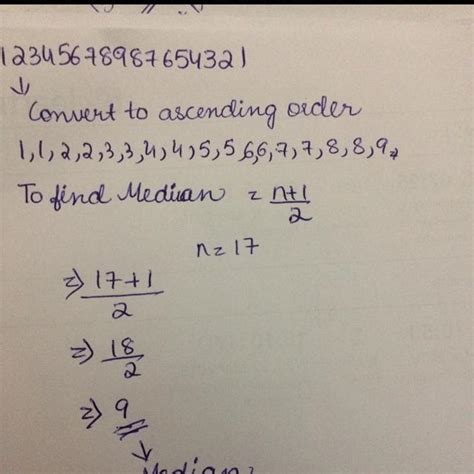 12345678987654321
↓
Convert to ascending order
1,1,2,2,3,3,4,4,5,5,6,6,7,7,8,8,9,
To find Median = n+1/2
n=17
⇒ 17+1/2
⇒ 18/2
⇒ 9
↓
Median: